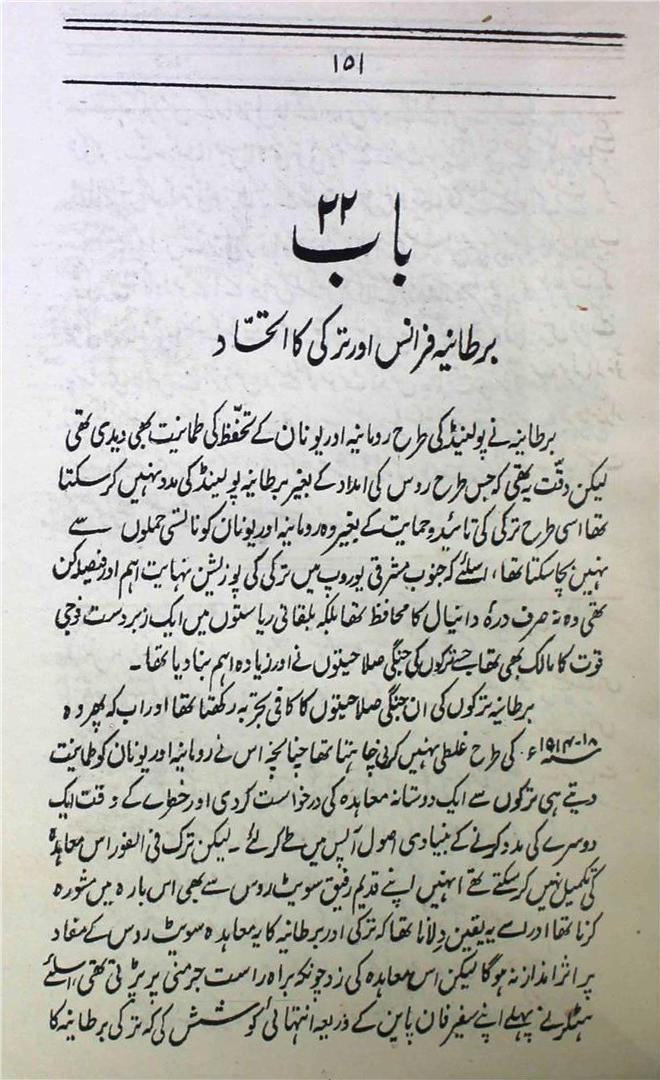 ۱۵۱
باب ۲۲
برطانیہ فرانس اور ترکی کا اتحاد
برطانیہ نے پولینڈ کی طرح رومانیہ اور یونان کے تحفّظ کی طمانیت بھی دیدی تھی
لیکن دقّت یہ تھی کہ جس طرح روس کی امداد کے بغیر برطانیہ پولینڈ کی مدد نہیں کر سکتا
تھا اسی طرح ترکی کی تائید و حمایت کے بغیر وہ رومانیہ اور یونان کو ناتسی حملوں سے
نہیں بچا سکتا تھا، اسلئے کہ جنوب مشرقی یوروپ میں ترکی کی پوزیشن نہایت اہم اور فیصلہ کن
تھی وہ نہ صرف درۂ دانیال کا محافظ تھا بلکہ بلقانی ریاستوں میں ایک زبردست فوجی
قوت کا مالک بھی تھا جسے ترکوں کی جنگی صلاحیتوں نے اور زیادہ اہم بنا دیا تھا۔
برطانیہ ترکوں کی ان جنگی صلاحیتوں کا کافی تجربہ رکھتا تھا اور اب کہ پھر وہ
۱۸-۱۹۱۴ء کی طرح غلطی نہیں کرنی چاہتا تھا چنانچہ اس نے رومانیہ اور یونان کو طمانیت
دیتے ہی ترکوں سے ایک دوستانہ معاہدہ کی درخواست کر دی اور خطرے کے وقت ایک
دوسرے کی مدد کرنے کے بنیادی اصول آپس میں طے کر لئے۔ لیکن ترک فی الفور اس معاہدہ
کی تکمیل نہیں کر سکتے تھے انہیں اپنے قدیم رفیق سویٹ روس سے بھی اس بارہ میں مشورہ
کرنا تھا اور اسے یہ یقین دلانا تھا کہ ترکی اور برطانیہ کا یہ معاہدہ سویٹ روس کے مفاد
پر اثر انداز نہ ہوگا لیکن اس معاہدہ کی زد چونکہ براہ راست جرمنی پر پڑتی تھی، اسلئے
ہٹلر نے پہلے اپنے سفیر فان پاپن کے ذریعہ انتہائی کوشش کی کہ ترکی برطانیہ کا